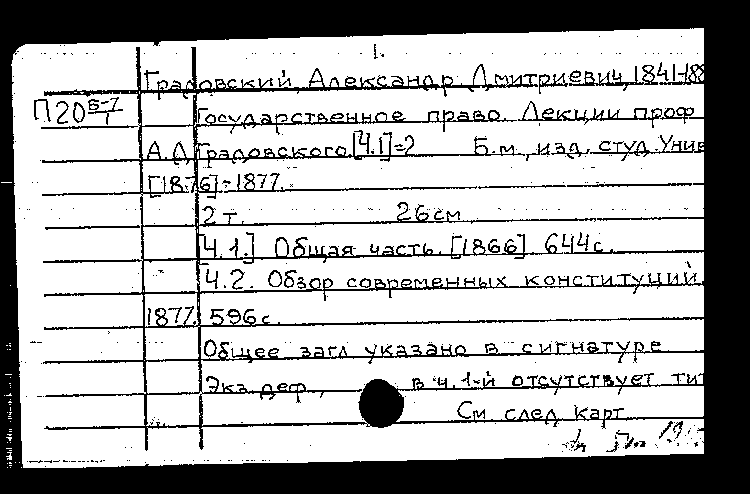 1.
Градовский, Александр Дмитриевич, 1841-188
П20 Б-7/1
Государственное право. Лекции проф
А.Д. Градовского. [Ч.1]-2 Б.м., изд. студ. Унив
[1876]-1877.
2 т. 26 см.
[Ч.1.] Общая часть. [1866] 644 с.
Ч.2. Обзор современных конституций.
1877. 596 с.
Общее загл указано в сигнатуре
Экз. деф., в ч. 1-й отсутствует тит
См след карт